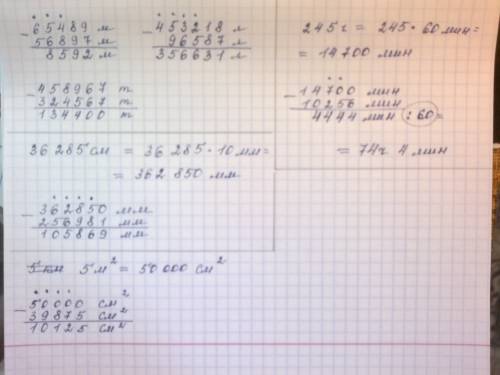 - 65489 м
56897 м
8592 м
- 453218 л
96587 л
356631 л
- 458967 т
324567 т
134400 т
36285 см = 36 285 · 10 мм =
= 362 850 мм
- 362850 мм
256981 мм
105869 мм
5 м² = 50 000 см²
- 50000 см²
39875 см²
10125 см²
245 ч = 245 · 60 мин =
= 14700 мин
- 14700 мин
10256 мин
4444 мин : 60 =
= 74ч 4 мин